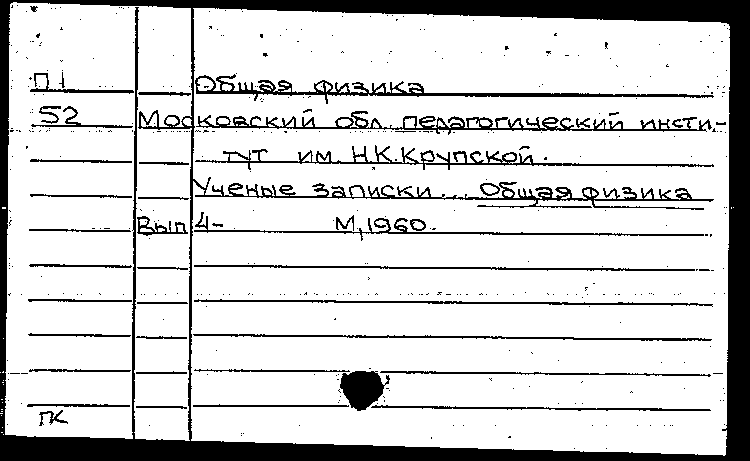 П1 Общая физика
52 Московский обл. педагогический инсти-
тут им. Н.К.Крупской.
Ученые записки... Общая физика
Вып 4- М,1960.
ПК